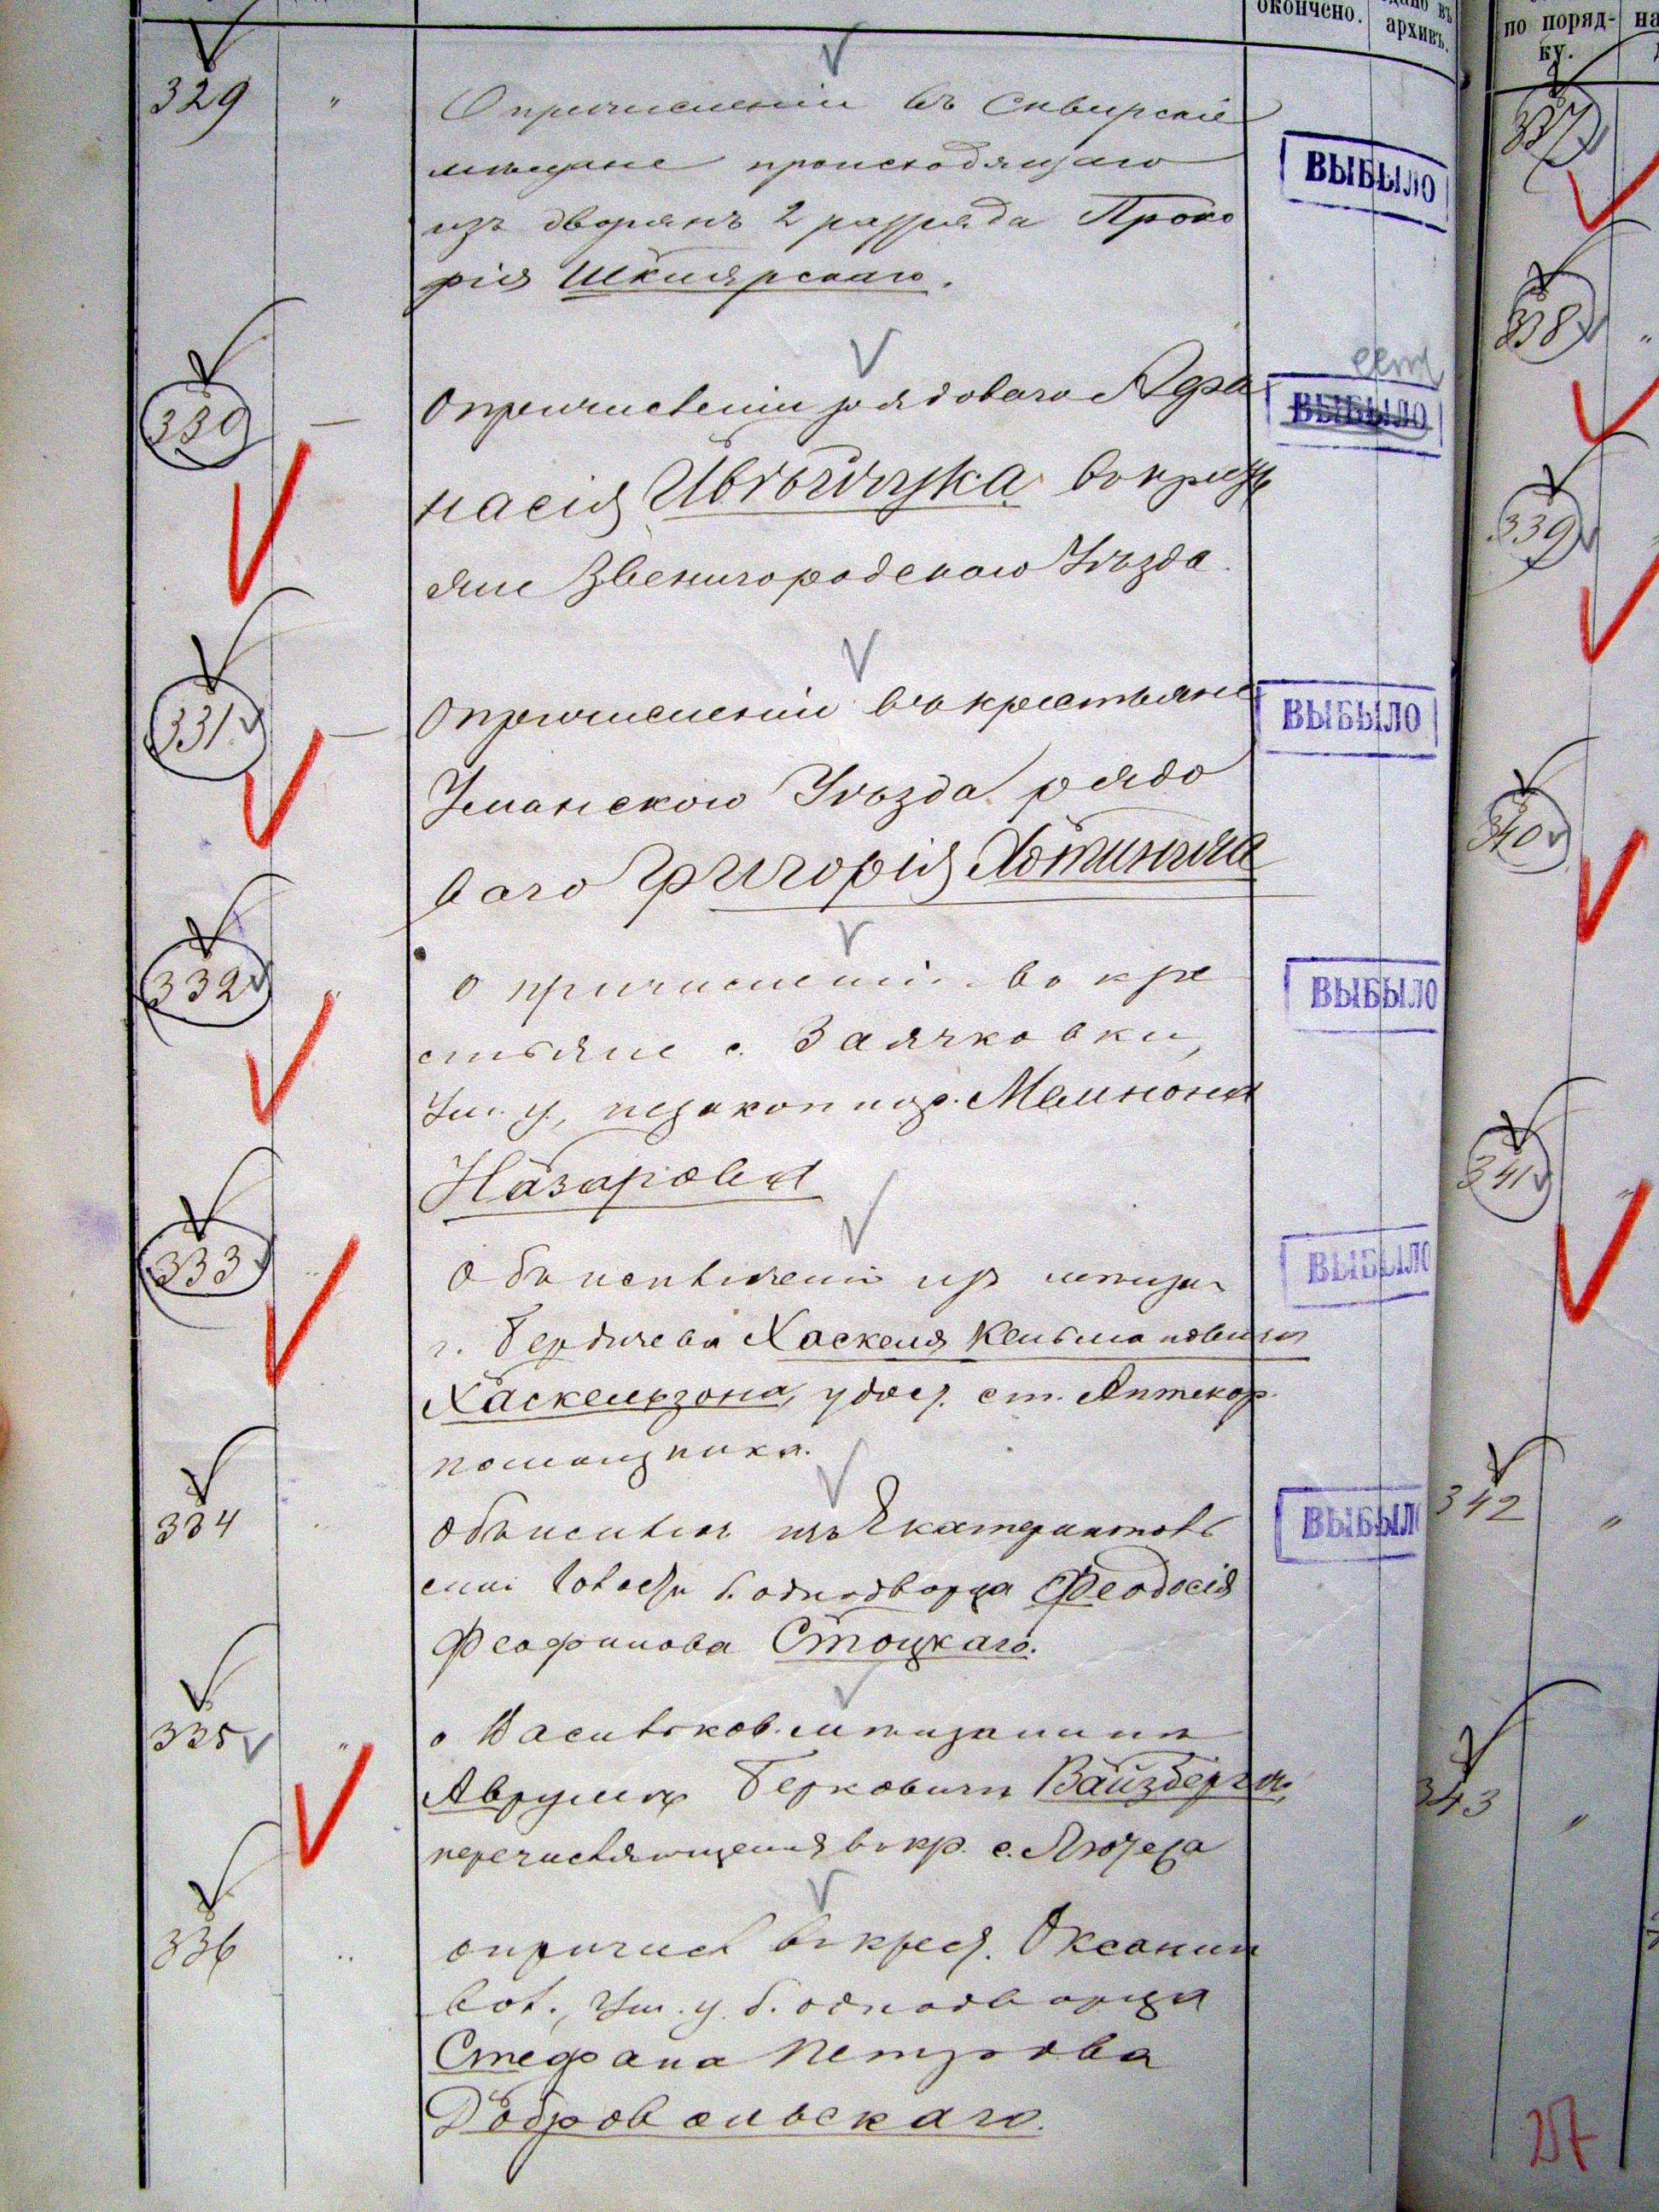 окончено.
архивъ.
по поряд-
ку.
329 "
О причисленіи въ Сквирскіе
мѣщане происходящаго
изъ дворянъ 2 разряда Проко
рія Шклярскаго.
ВЫБЫЛО
330 —
О причисленіи рядоваго Афа
насія въ крестъ
яне Звенигородскаго Уѣзда.
ВЫБЫЛО
331 —
О причисленіи въ крестьяне
Уманскаго Уѣзда рядо
ваго Григорія
ВЫБЫЛО
332 "
О причисленіи въ кре
стьяне с. Заячковки,
Ум. у., Мемнона
Назарова
ВЫБЫЛО
333 "
Объ исключеніи изъ мѣщан
г. Бердичева Хаскеля Кельмановича
Хаскельзона, удост. ст. Аптекар.
помощника.
ВЫБЫЛО
334
Объ исключ. изъ Екатеринов
б. однодворца Феодосія
Феофилова Стоцкаго.
ВЫБЫЛО
335 "
о Васильков. мѣщанинѣ
Аврумѣ Берковичѣ Вайзбергѣ,
перечисляющемся въ кр. с.
336 "
о причисл въ крест. Оксанин
вол., Ум. у. б. однодворца
Стефана Петрова
Добровольскаго.
337
338 "
339
340
341 "
342 "
343 "
257